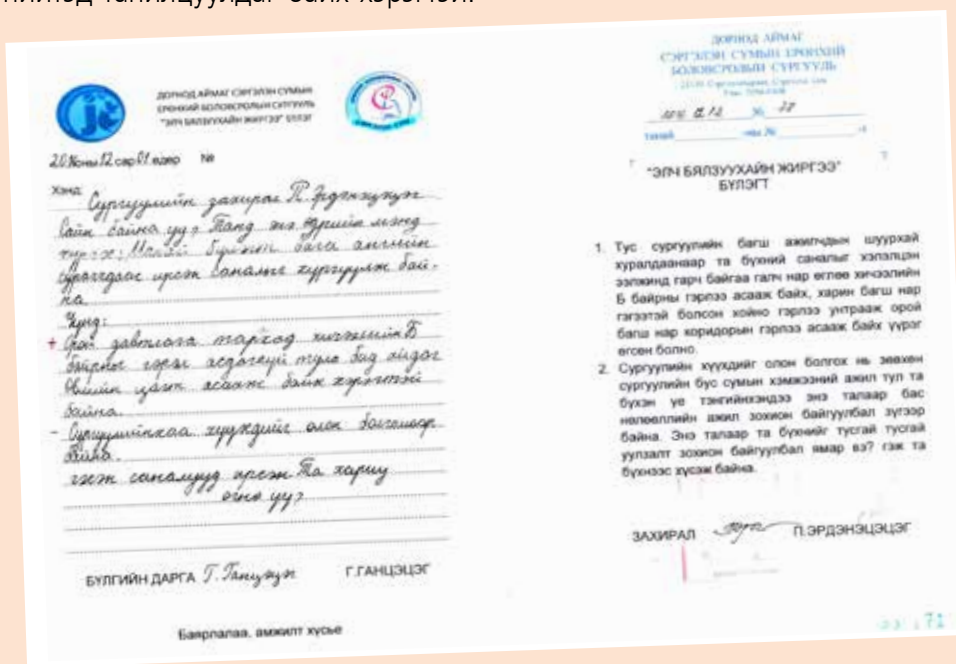 нийтэд танилцуулдаг байх хэрэгтэй.
ДОРНОД АЙМАГ СЭРГЭЛЭН СУМЫН
ЕРӨНХИЙ БОЛОВСРОЛЫН СУРГУУЛЬ
"ЭЛЧ БЯЛЗУУХАЙН ЖИРГЭЭ" БҮЛЭГ
12 сар 01 өдөр №
Хэнд: Сургуулийн захирал П. Эрдэнэцэцэг
Сайн байна уу? Танд энэ өдрийн мэнд
хүргэе! Манай бүлгэмд бага ангийн
сурагдаас ирсэн саналыг хүргүүлж бай-
на.
Үүнд:
+ Орой давтлага тарход хичээлийн Б
байрны гэрэл асдаггүй тула бид айдаг
Өвлийн цагт асааж байх хэрэгтэй
байна.
- Сургуулийнхаа хүүхдийг олон болгомоор
байна.
гэсэн саналууд ирсэн Та хариу
өгнө үү?
БҮЛГИЙН ДАРГА Г. Ганцэцэг Г.ГАНЦЭЦЭГ
Баярлалаа, амжилт хүсье
ДОРНОД АЙМАГ
СЭРГЭЛЭН СУМЫН ЕРӨНХИЙ
БОЛОВСРОЛЫН СУРГУУЛЬ
№
танай -ны №
"ЭЛЧ БЯЛЗУУХАЙН ЖИРГЭЭ"
БҮЛЭГТ
1. Тус сургуулийн багш ажилчдын шуурхай
хуралдаанаар та бүхний саналыг хэлэлцэн
ээлжинд гарч байгаа галч нар өглөө хичээлийн
Б байрны гэрлээ асааж байх, харин багш нар
гэгээтэй болсон хойно гэрлээ унтрааж орой
багш нар коридорын гэрлээ асааж байх үүрэг
өгсөн болно.
2. Сургуулийн хүүхдийг олон болгох нь зөвхөн
сургуулийн бус сумын хэмжээний ажил тул та
бүхэн үе тэнгийнхэндээ энэ талаар бас
нөлөөллийн ажил зохион байгуулбал зүгээр
байна. Энэ талаар та бүхнийг тусгай тусгай
уулзалт зохион байгуулбал ямар вэ? гэж та
бүхнээс хүсэж байна.
ЗАХИРАЛ П.ЭРДЭНЭЦЭЦЭГ
71